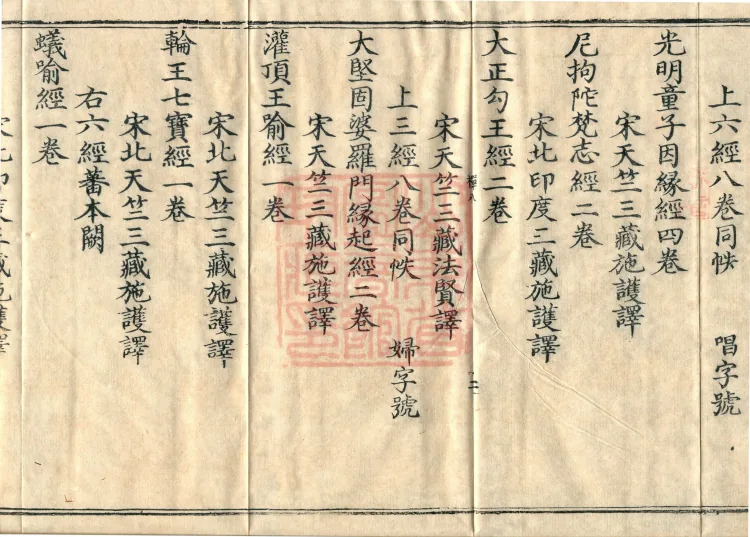 上六經八卷同帙 唱字號
光明童子因緣經四卷
宋天竺三藏施護譯
尼拘陀梵志經二卷
宋北印度三藏施護譯
大正勾王經二卷
宋天竺三藏法賢譯
上三經八卷同帙 婦字號
大堅固婆羅門緣起經二卷
宋天竺三藏施護譯
灌頂王喻經一卷
宋北天竺三藏施護譯
輪王七寶經一卷
宋北天竺三藏施護譯
右六經蕃本闕
蟻喻經一卷
宋北印度三藏施護譯